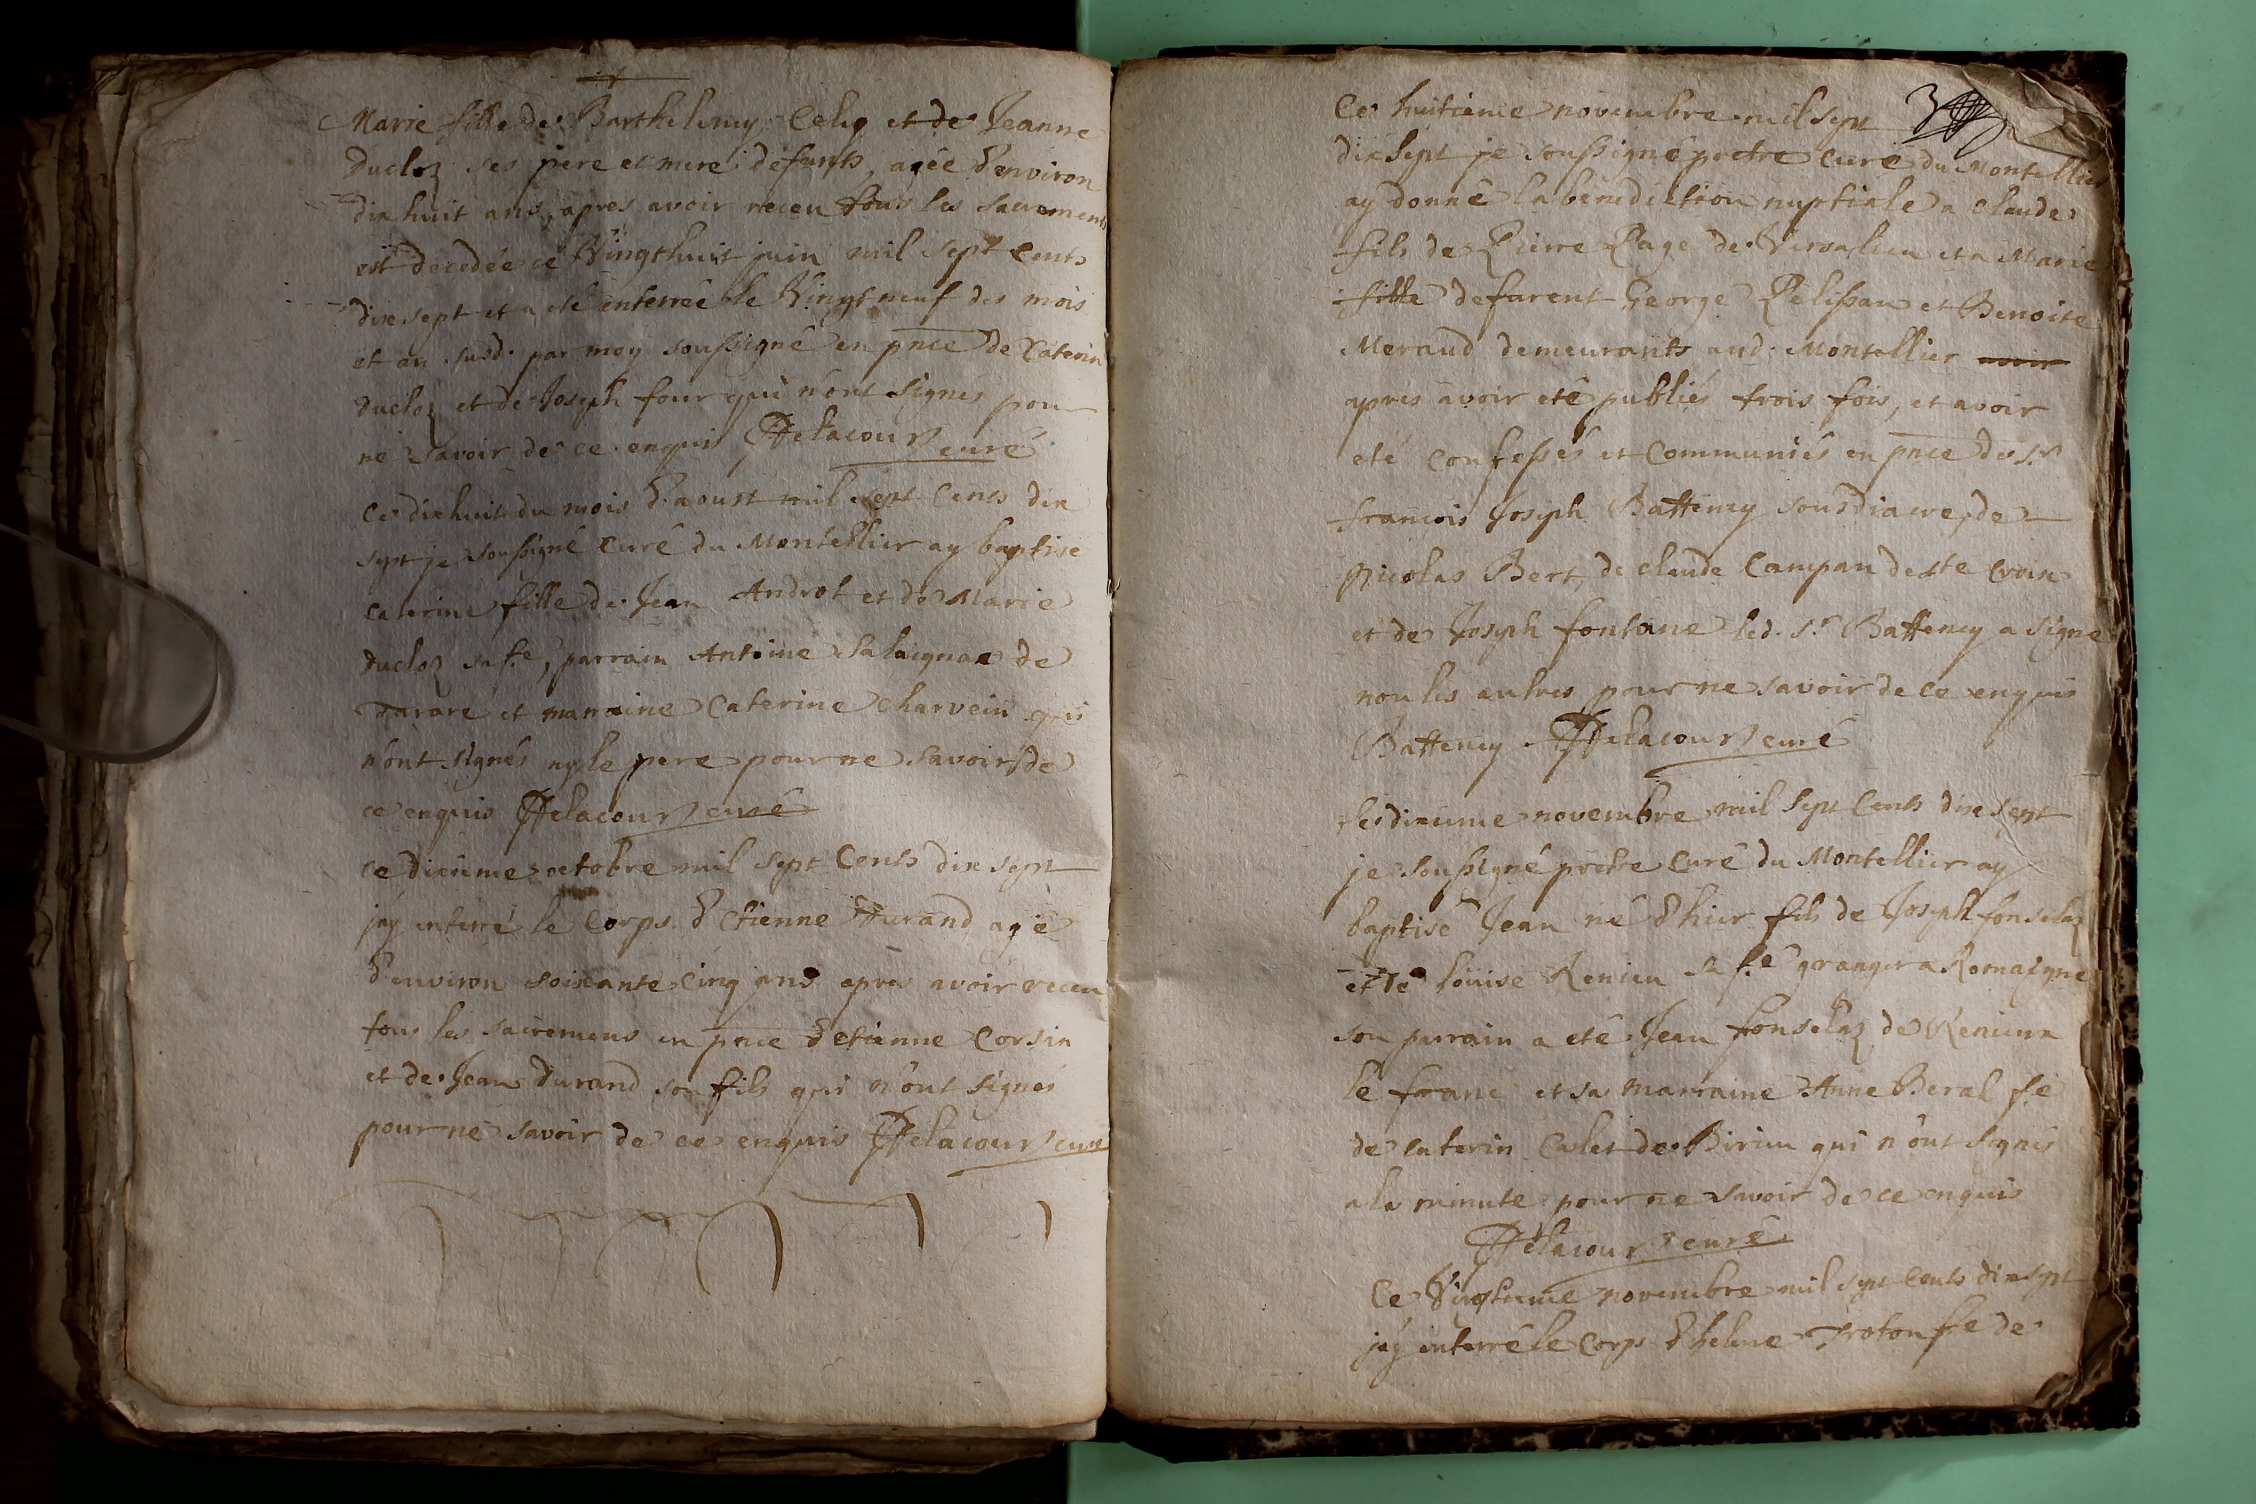 Marie fille de Barthelemy Celiq et de Jeanne
ducloz ses pere et mere defunts, agée d'environ
dixhuit ans, apres avoir receu tous les sacremens
est decedée ce Vingthuit juin mil sept cents
dixsept et a eté enterrée le Vingt neuf des mois
et an susd. par moy soussigné en pnce de Caterin
ducloz et de Joseph four qui n'ont signés pour
ne savoir de ce enquis Delacour curé
Ce dixhuit du mois d'aoust mil sept Cents dix
sept je soussigné Curé du Montellier ay baptisé
Caterine fille de Jean Androt et de Marie
ducloz sa fe, parrain Antoine Salaignac de
Tarare et marraine Caterine Charvein qui
n'ont signés ny le pere pour ne savoir de
ce enquis Delacour curé
ce dixieme octobre mil sept Cents dix sept
j'ay enterré le Corps d'Etienne Durand agé
d'environ soixante cinq ans apres avoir receu
tous les sacremens en pnce d'etienne Corsin
et de Jean Durand son fils qui n'ont signés
pour ne savoir de ce enquis Delacour curé
Ce huitieme novembre mil sept 3
dix sept je soussigné pretre curé du Montellier
ay donné la benediction nuptiale a Claude
fils de Pierre Page de Versalieu et a Marie
fille de George Pelissan et Benoite
Meraud demeurants aud. Montellier
apres avoir eté publiés trois fois, et avoir
eté Confessés et Communiés en pnce de sr
françois Joseph Battency sousdiacre, de
Nicolas Bert, de Claude Campan de ste Croix
et de Joseph fontane led. sr Battency a signé
non les autres pour ne savoir de ce enquis
Battency Delacour curé
le dixieme novembre mil sept Cents dix sept
je soussigné pretre Curé du Montellier ay
baptisé Jean né d'hier fils de Joseph fonselaz
et de louise Renieu sa fe granger a Romaigne
son parrain a eté Jean fonselaz de Renieux
le franc et sa marraine Anne Beral fe
de Caterin Calet de Birieu qui n'ont signés
a la minute pour ne savoir de ce enquis
Delacour curé
Ce Vingtieme novembre mil sept Cents dix sept
j'ay enterré le Corps d'helene Troton fe de